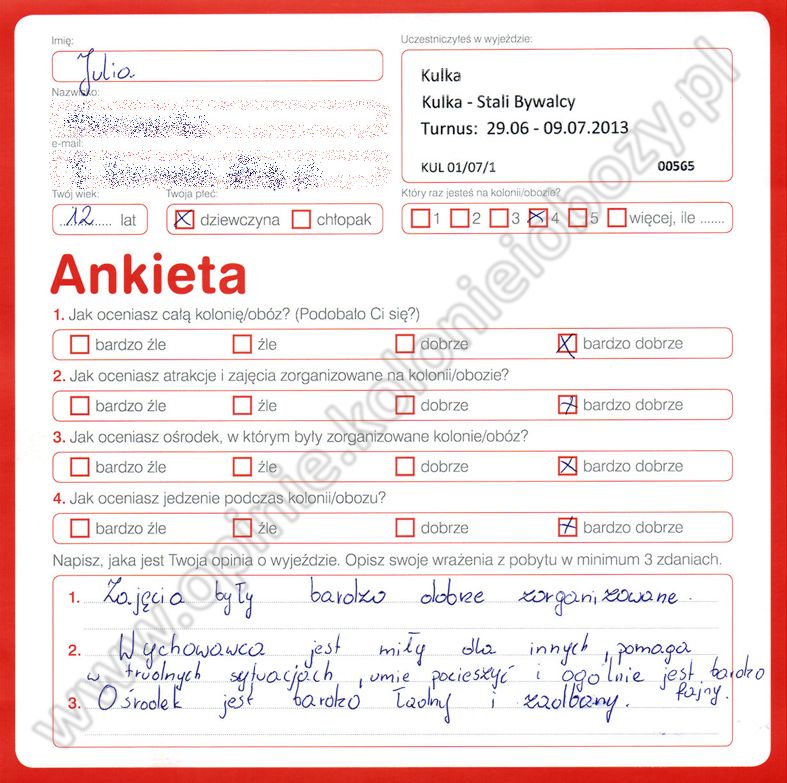 Imię:
Julia
Nazwisko:
e-mail:
Twój wiek:
12 lat
Twoja płeć:
dziewczyna chłopak
Uczestniczyłeś w wyjeździe:
Kulka
Kulka - Stali Bywalcy
Turnus: 29.06 - 09.07.2013
KUL 01/07/1 00565
Który raz jesteś na kolonii/obozie?
1 2 3 4 5 więcej, ile .......
Ankieta
1. Jak oceniasz całą kolonię/obóz? (Podobało Ci się?)
bardzo źle źle dobrze bardzo dobrze
2. Jak oceniasz atrakcje i zajęcia zorganizowane na kolonii/obozie?
bardzo źle źle dobrze bardzo dobrze
3. Jak oceniasz ośrodek, w którym były zorganizowane kolonie/obóz?
bardzo źle źle dobrze bardzo dobrze
4. Jak oceniasz jedzenie podczas kolonii/obozu?
bardzo źle źle dobrze bardzo dobrze
Napisz, jaka jest Twoja opinia o wyjeździe. Opisz swoje wrażenia z pobytu w minimum 3 zdaniach.
1. Zajęcia były bardzo dobrze zorganizowane.
2. Wychowawca jest miły dla innych, pomaga
w trudnych sytuacjach, umie pocieszyć i ogólnie jest bardzo
fajny.
3. Ośrodek jest bardzo ładny i zadbany.
www.opinie.kolonieiobozy.pl